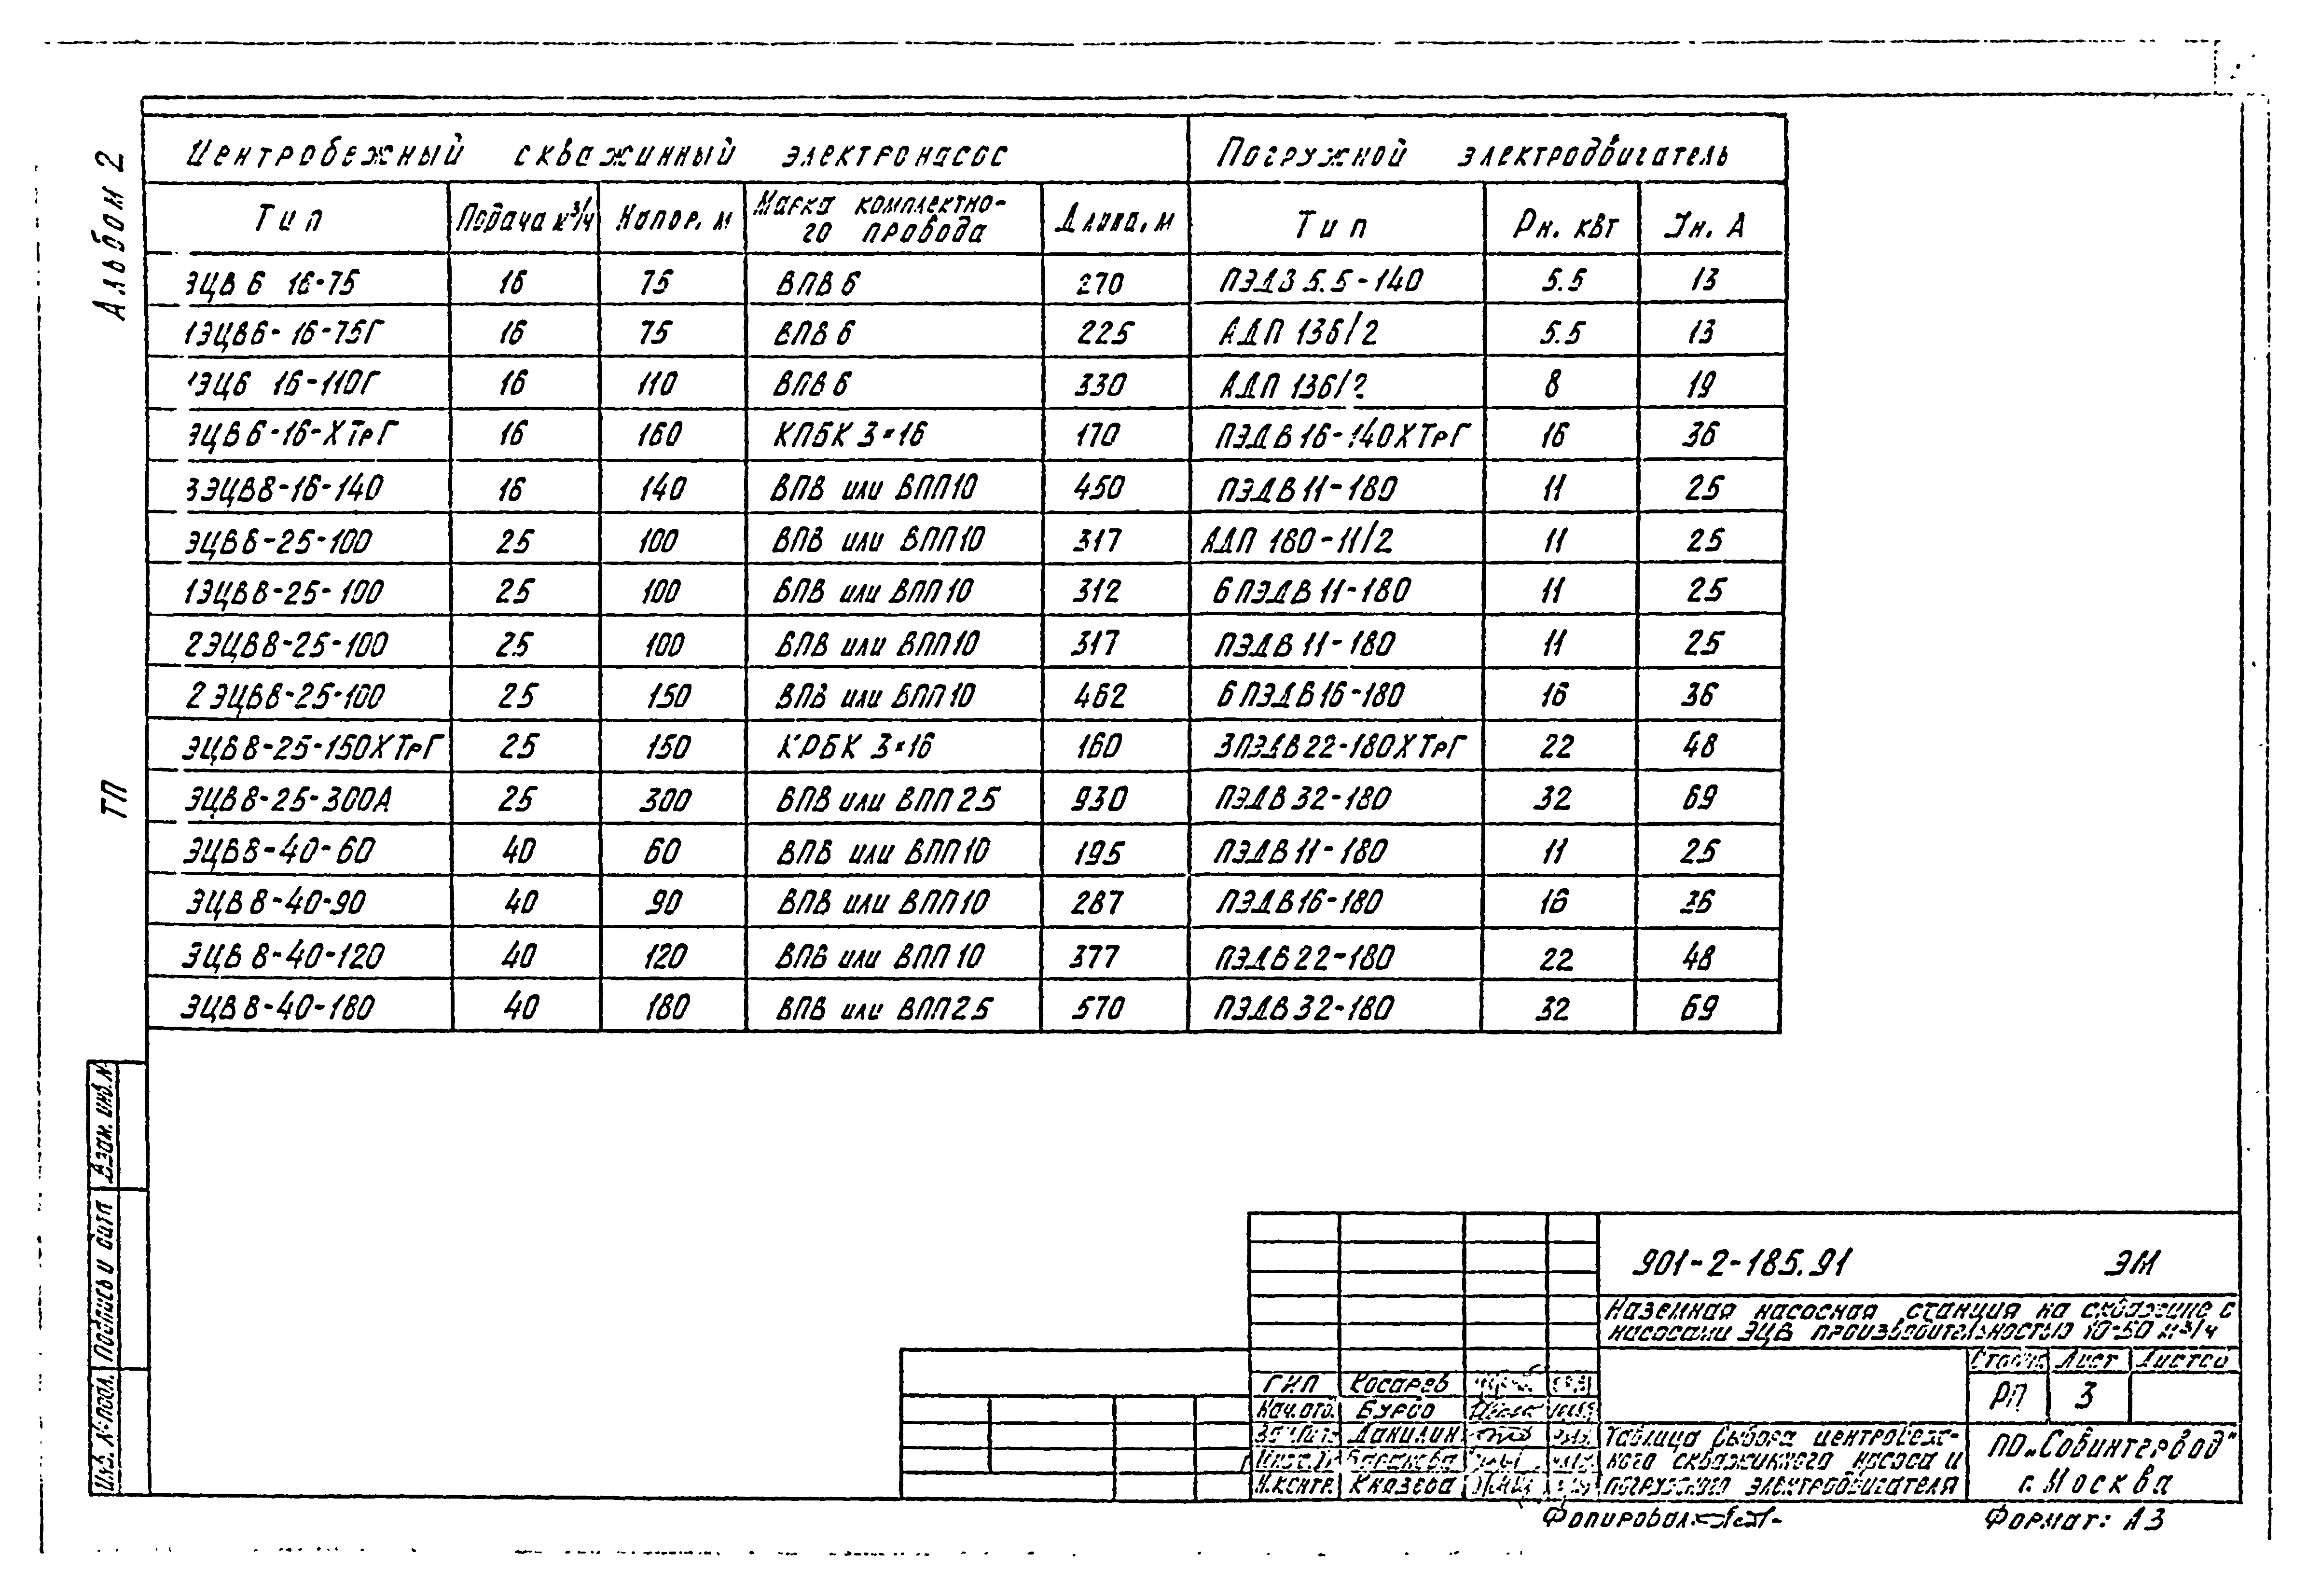 Альбом 2
ТП
Центробежный скважинный электронасос Погружной электродвигатель
Тип Подача м³/ч Напор, м Марка комплектно-
го провода Длина, м Тип Рн. квт Iн. А
ЭЦВ 6 16-75 16 75 ВПВ 6 270 ПЭДВ 5.5-140 5.5 13
1ЭЦВ6-16-75Г 16 75 ВПВ 6 225 АДП 136/2 5.5 13
1ЭЦ6 16-110Г 16 110 ВПВ 6 330 АДП 136/2 8 19
ЭЦВ6-16-ХТрГ 16 160 КПБК 3×16 170 ПЭДВ16-140ХТрГ 16 36
3ЭЦВ8-16-140 16 140 ВПВ или ВПП10 450 ПЭДВ11-180 11 25
ЭЦВ8-25-100 25 100 ВПВ или ВПП10 317 АДП 180-11/2 11 25
1ЭЦВ8-25-100 25 100 ВПВ или ВПП10 312 6ПЭДВ11-180 11 25
2ЭЦВ8-25-100 25 100 ВПВ или ВПП10 317 ПЭДВ11-180 11 25
2ЭЦВ8-25-100 25 150 ВПВ или ВПП10 462 6ПЭДВ16-180 16 36
ЭЦВ8-25-150ХТрГ 25 150 КРБК 3×16 160 3ПЭДВ22-180ХТрГ 22 48
ЭЦВ8-25-300А 25 300 ВПВ или ВПП25 930 ПЭДВ32-180 32 69
ЭЦВ8-40-60 40 60 ВПВ или ВПП10 195 ПЭДВ11-180 11 25
ЭЦВ8-40-90 40 90 ВПВ или ВПП10 287 ПЭДВ16-180 16 36
ЭЦВ8-40-120 40 120 ВПВ или ВПП10 377 ПЭДВ22-180 22 48
ЭЦВ8-40-180 40 180 ВПВ или ВПП25 570 ПЭДВ32-180 32 69
Взам. инв. №
Подпись и дата
Инв. № подл.
901-2-185.91 ЭМ
Наземная насосная станция на скважине с
насосами ЭЦВ производительностью 10-50 м³/ч
Стадия Лист Листов
РП 3
ГИП Косарев
Нач.отд. Бурдо
Данилин
Баранова
Н.контр. Князева
Таблица выбора центробеж-
ного скважинного насоса и
погружного электродвигателя
ПО „Совинтервод"
г. Москва
Копировал
Формат: А3